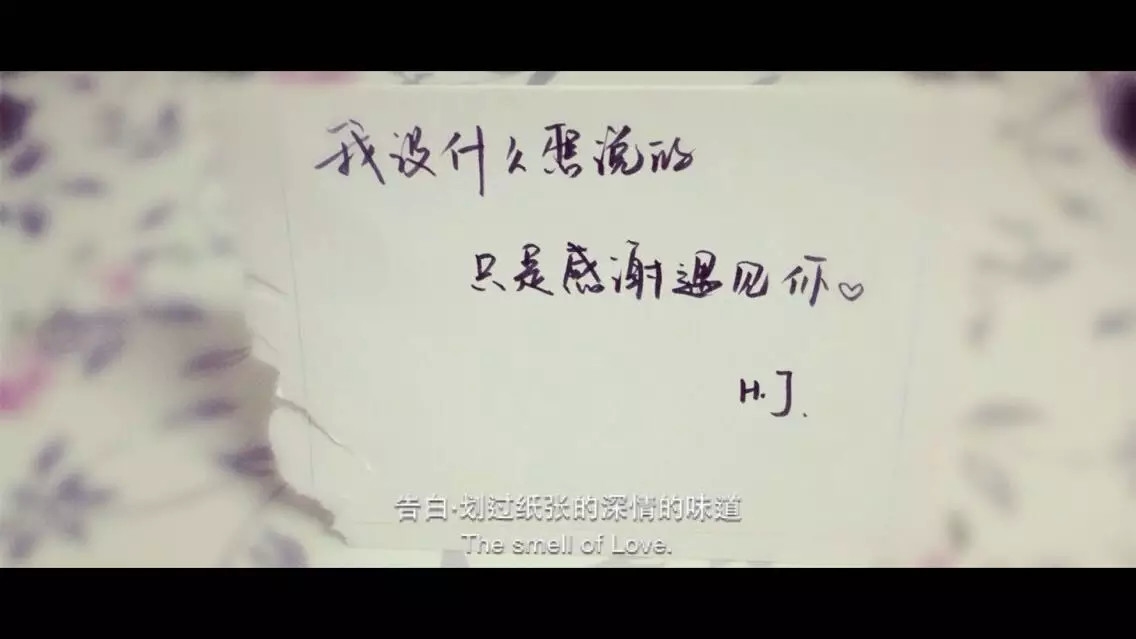 我没什么想说的
只是感谢遇见你♡
H.J.
告白·划过纸张的深情的味道
The smell of Love.